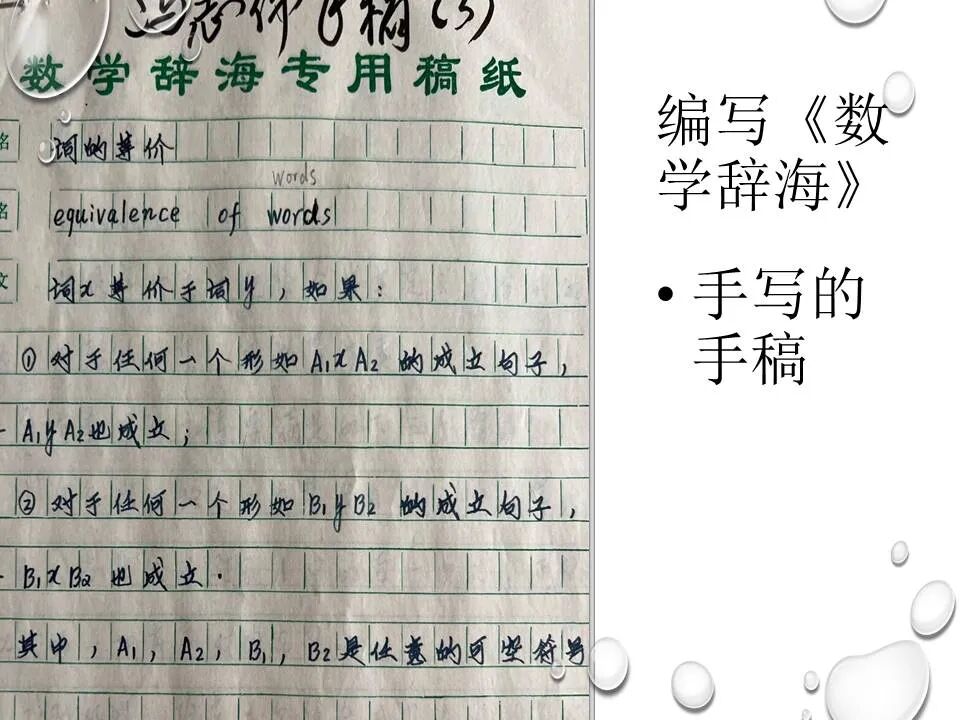 手稿(3)
数学辞海专用稿纸
名 词的等价
words
名 equivalence of words
文 词x等价于词y，如果：
①对于任何一个形如A₁xA₂的成立句子，
A₁yA₂也成立；
②对于任何一个形如B₁yB₂的成立句子，
B₁xB₂也成立.
其中，A₁，A₂，B₁，B₂是任意的可空符号
编写《数
学辞海》
• 手写的
手稿